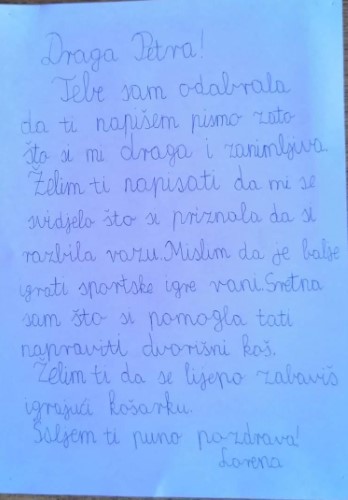 Draga Petra!
Tebe sam odabrala
da ti napišem pismo zato
što si mi draga i zanimljiva.
Želim ti napisati da mi se
svidjelo što si priznala da si
razbila vazu. Mislim da je bolje
igrati sportske igre vani. Sretna
sam što si pomogla tati
napraviti dvorišni koš.
Želim ti da se lijepo zabaviš
igrajući košarku.
Šaljem ti puno pozdrava!
Lorena